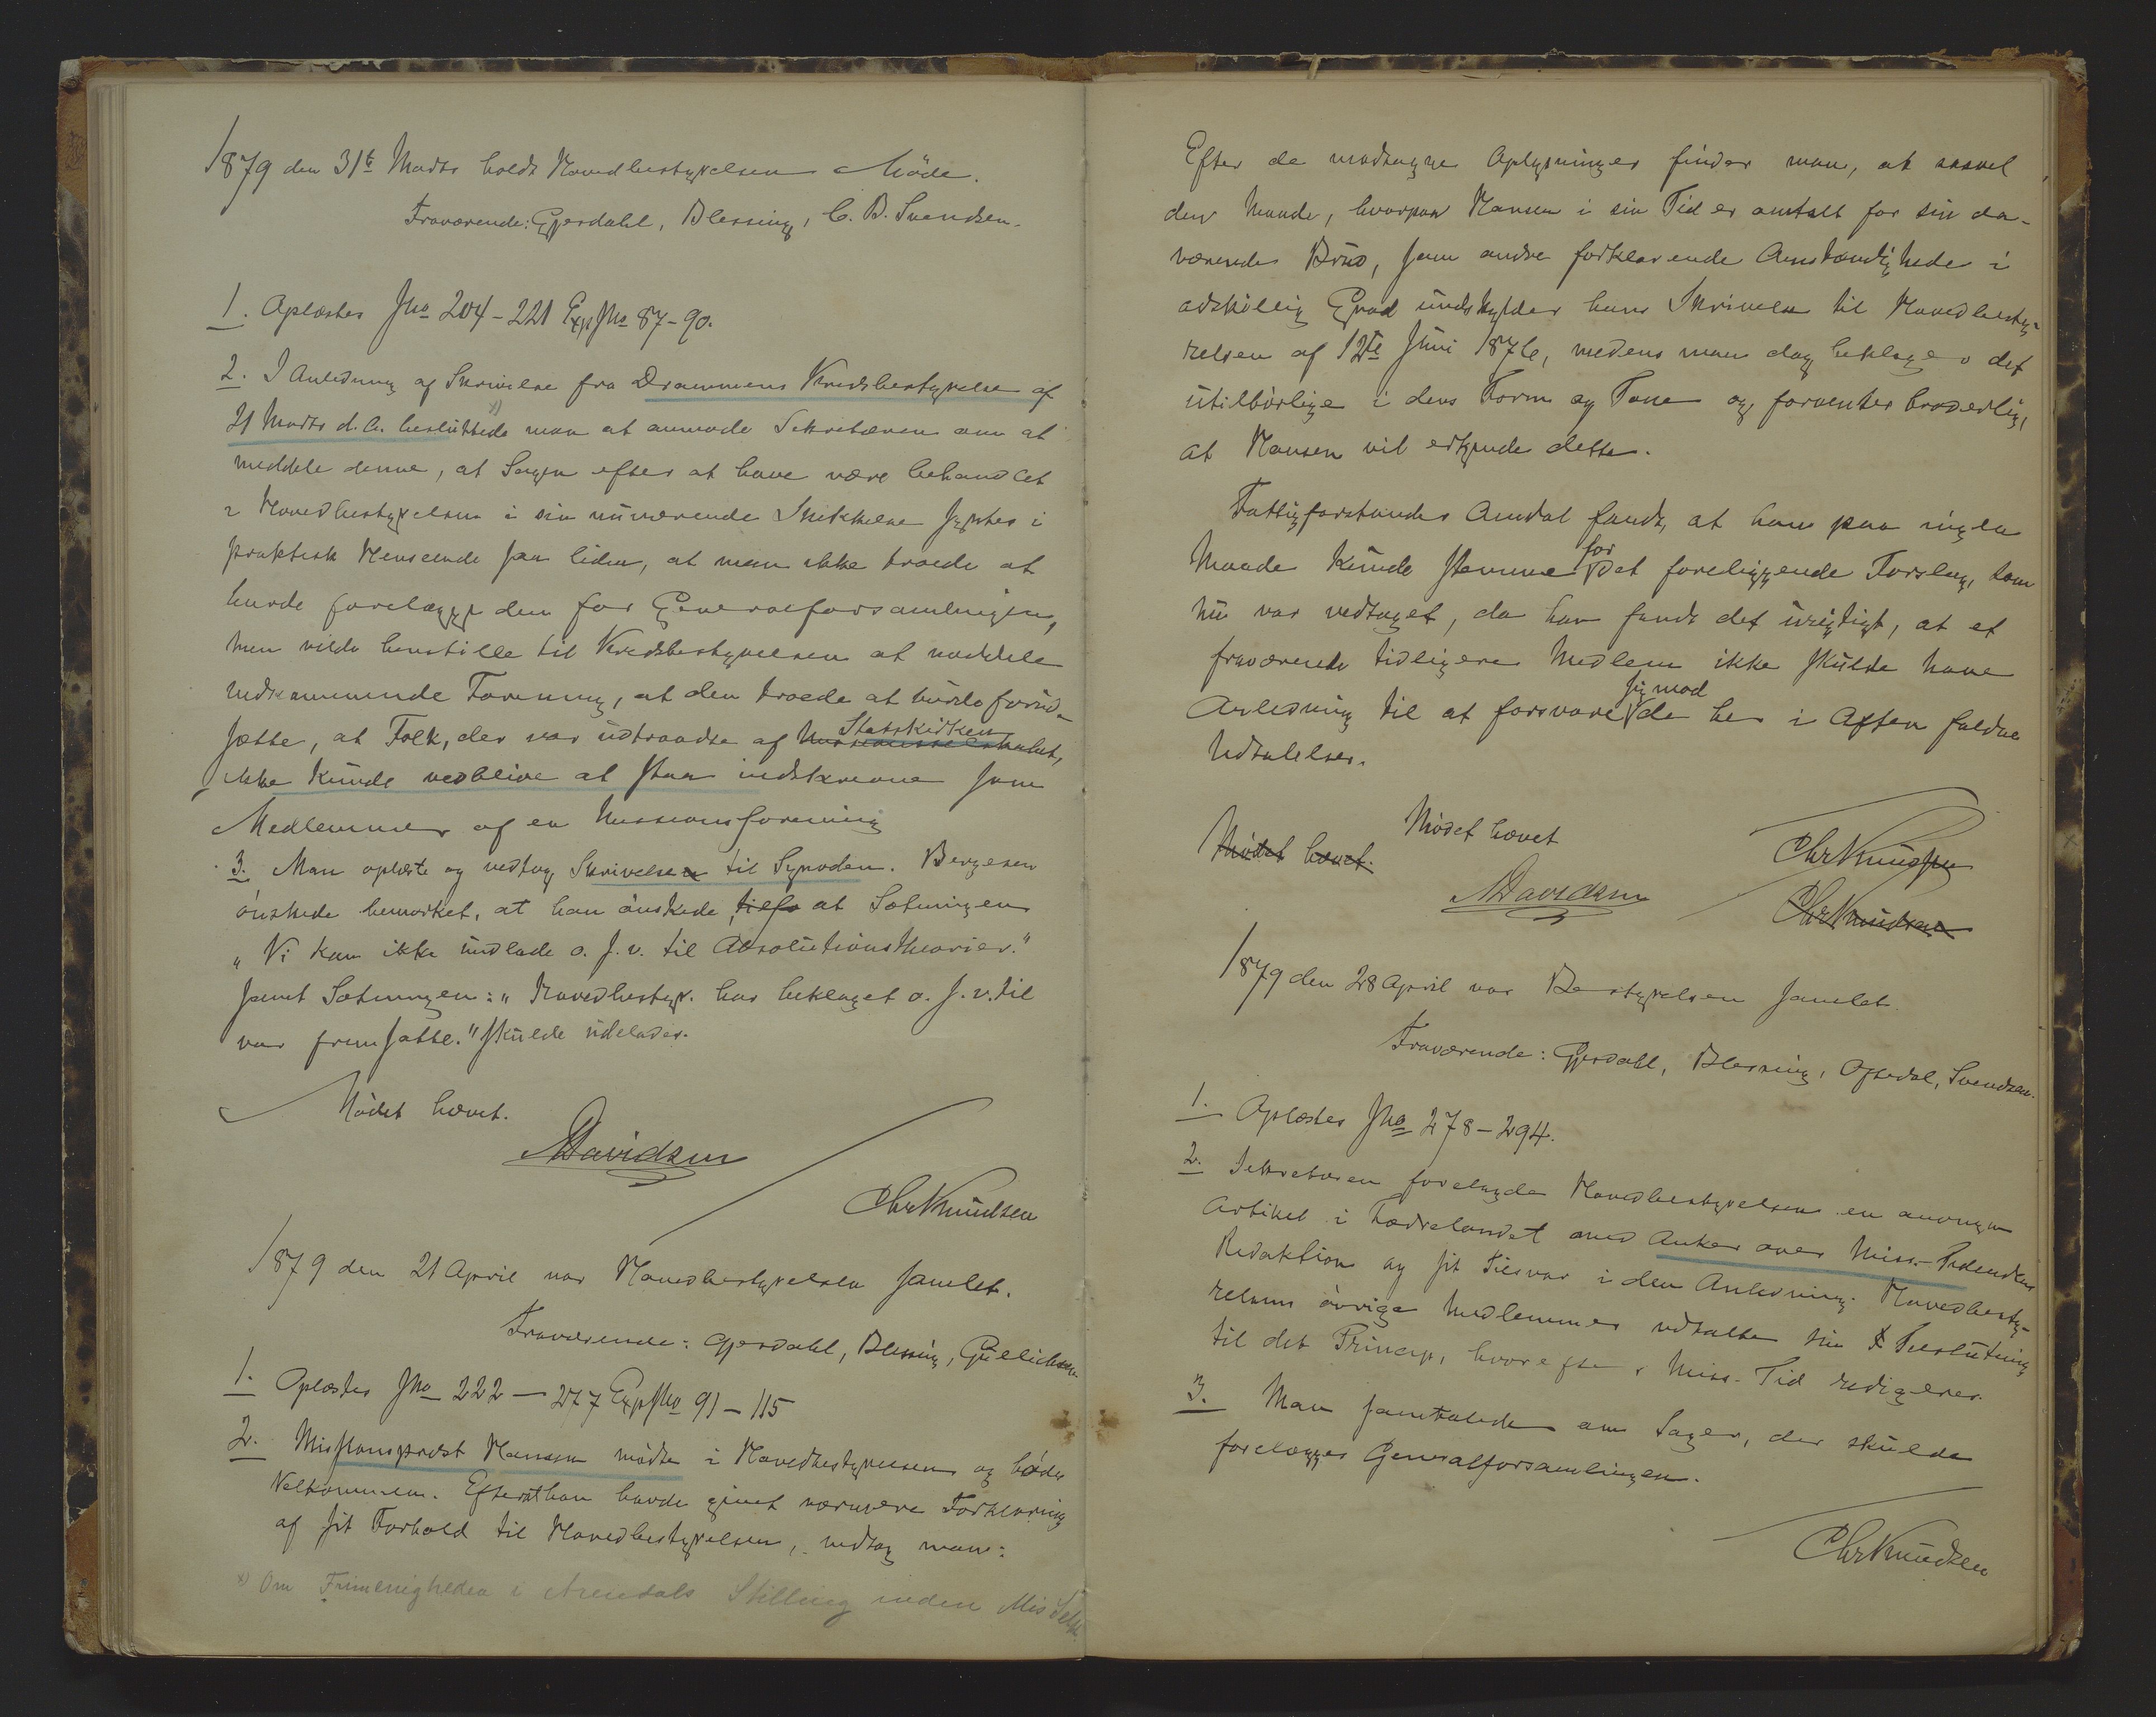 1879 den 31te Marts holdt Hovedbestyrelsen Møde.
Fraværende: Gjerdahl, Blessing, C. B. Svendsen.
1. Oplæstes Jno 204-221 ExpJno 87-90.
2. I Anledning af Skrivelse fra Drammens Kredsbestyrelse af
21 Marts d. A. besluttede x) man at anmode Sekretæren om at
meddele denne, at Sagen efter at have være behandlet
i Hovedbestyrelsen i sin nuværende Skikkelse syntes i
praktisk Henseende saa liden, at man ikke troede at
burde forelægge den for Generalforsamlingen,
men vilde henstille til Kredsbestyrelsen at meddele
vedkommende Forening, at den troede at burde forud-
sætte, at Folk, der var udtraadte af Missionsselskabet, Statskirken
ikke kunde vedblive at staa indskrevne som
Medlemmer af en Missionsforening
3. Man oplæste og vedtog Skrivelsen til Synoden. Bergesen
ønskede bemærket, at han ønskede, at Sætningen
„Vi kan ikke undlade o. s. v. til Absolutionstheorier."
samt Sætningen: „Hovedbestyr. har beklaget o. s. v. til
var fremsatte." skulde udelades.
Mødet hævet.
ADavidsen
ChrKnudsen
1879 den 21 April var Hovedbestyrelsen samlet.
Fraværende: Gjerdahl, Blessing, Gullichsen
1. Oplæstes Jno 222 - 277 ExpJno 91-115
2. Missionsprest Hansen mødte i Hovedbestyrelsen og bødes
Velkommen. Efterat han havde givet nærmere Forklaring
af sit Forhold til Hovedbestyrelsen, vedtog man:
x) Om Frimenigheden i Arendals Stilling inden Mis Selsk.
Efter de modtagne Oplysninger finder man, at saavel
den Maade, hvorpaa Hansen i sin Tid er omtalt for sin da-
værende Brud, som andre forklarende Omstændigheder i
adskillig Grad undskylder hans Skrivelse til Hovedbesty-
relsen af 12te Juni 1876, medens man dog beklager det
utilbørlige i dens Form og Tone og forventer broderlig,
at Hansen vil erkjende dette.
Fattigforstander Omdal fandt, at han paa ingen
Maade kunde stemme for det foreliggende Forslag, som
nu var vedtaget, da han fandt det urigtigt, at et
fraværende tidligere Medlem ikke skulde have
Anledning til at forsvare sig mod de her i Aften faldne
Udtalelser.
Mødet hævet
Mødet hævet.
ADavidsen
ChrKnudsen
ChrKnudsen
1879 den 28 April var Bestyrelsen samlet.
Fraværende: Gjerdahl, Blessing, Oftedal, Svendsen.
1. Oplæstes Jno 278-294.
2. Sekretæren forelagde Hovedbestyrelsen en anonym
Artikel i Fædrelandet med Anker over Miss.-Tidendens
Redaktion og sit Tilsvar i den Anledning. Hovedbesty-
relsens øvrige Medlemmer udtalte sin Tilslutning
til det Princip, hvorefter Miss.-Tid redigeres.
3. Man samtalede om Sager, der skulde
forelægges Generalforsamlingen.
ChrKnudsen